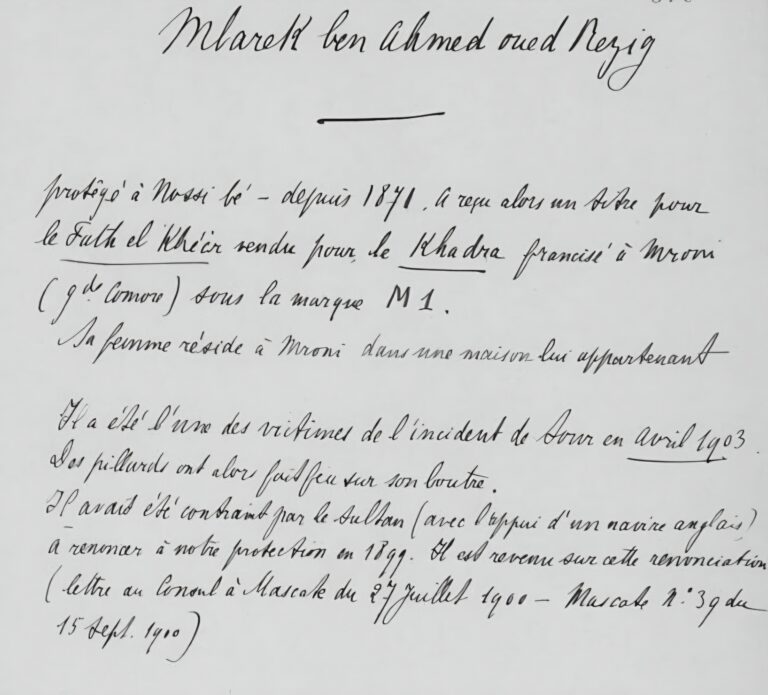 Mbarek ben Ahmed oued Rezig
protégé à Nossi bé – depuis 1871. a reçu alors un titre pour
le Fath el Khéïr vendu pour le Khadra francisé à Mroni
(gde Comore) sous la marque M 1.
Sa femme réside à Mroni dans une maison lui appartenant
Il a été l'une des victimes de l'incident de Sour en avril 1903.
Des pillards ont alors fait feu sur son boutre.
Il avait été contraint par le Sultan (avec l'appui d'un navire anglais)
à renoncer à notre protection en 1899. Il est revenu sur cette renonciation
(lettre au Consul à Mascate du 27 Juillet 1900 – Mascate N° 39 du
15 Sept. 1900)